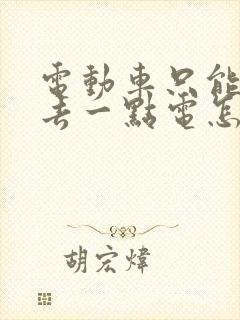 電動車只能
去一點電怎
胡宏煒